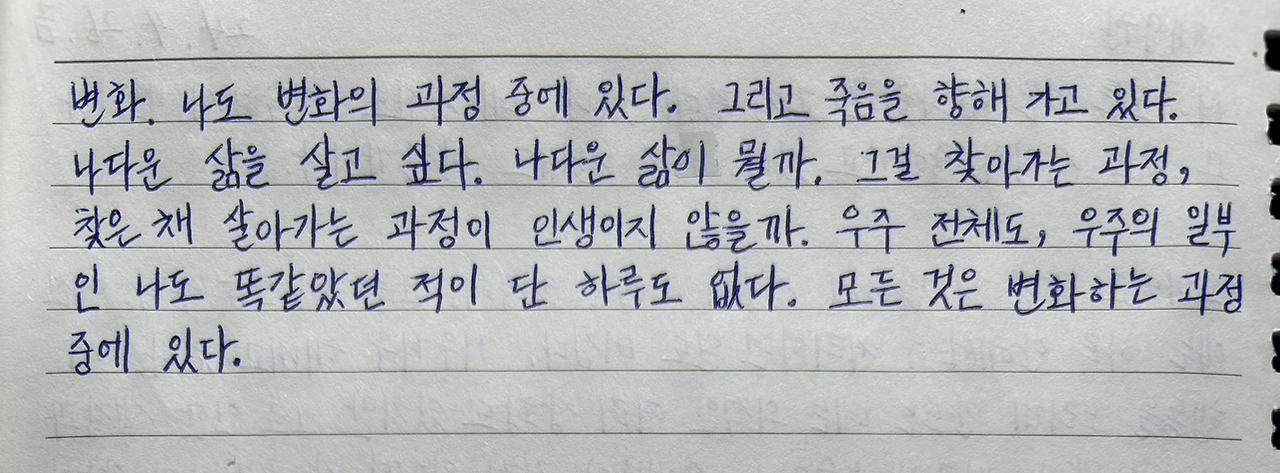 변화. 나도 변화의 과정 중에 있다. 그리고 죽음을 향해 가고 있다.
나다운 삶을 살고 싶다. 나다운 삶이 뭘까. 그걸 찾아가는 과정,
찾은 채 살아가는 과정이 인생이지 않을까. 우주 전체도, 우주의 일부
인 나도 똑같았던 적이 단 하루도 없다. 모든 것은 변화하는 과정
중에 있다.